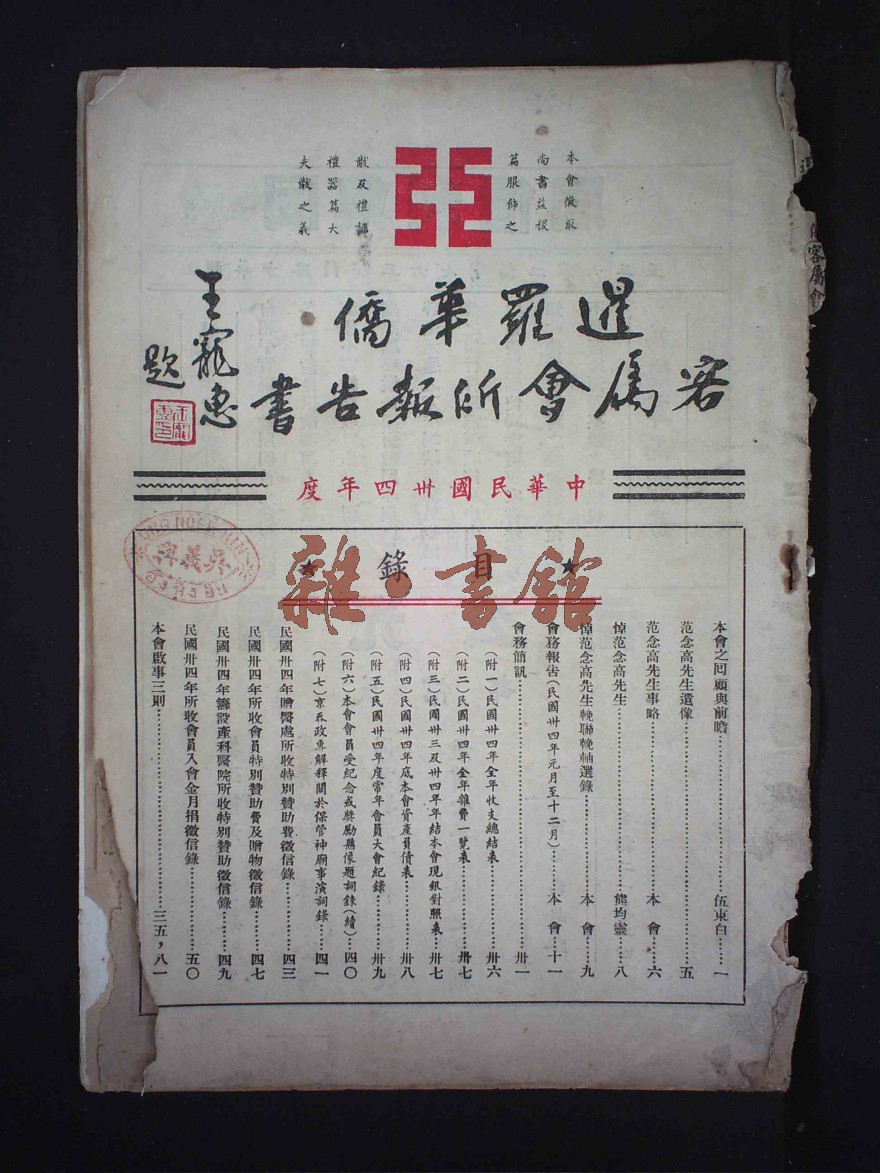 本會徽取
尚書益稷
篇服飾之
黻及禮記
禮器篇大
夫黻之義
暹羅華僑
客屬會所報告書
王寵惠
題
中華民國卅四年度
目錄
雜·書館
吳義
本會之回顧與前瞻……伍東白…一
范念高先生遺像……五
范念高先生事略……本會…六
悼范念高先生……熊均靈…八
悼范念高先生輓聯輓軸選錄……本會…九
會務報告(民國卅四年元月至十二月)……本會…十一
會務簡訊……卅一
(附一)民國卅四年全年收支總結表……卅六
(附二)民國卅四年全年雜費一覽表……卅七
(附三)民國卅三及卅四年年結本會現銀對照表……卅七
(附四)民國卅四年底本會資產負債表……卅八
(附五)民國卅四年度常年會員大會紀錄……卅九
(附六)本會會員受紀念或獎勵懸像題詞錄(續)……四〇
(附七)京吞政專解釋關於保管神廟事演詞錄……四一
民國卅四年贈醫處所收特別贊助費徵信錄……四三
民國卅四年所收會員特別贊助費及贈物徵信錄……四七
民國卅四年籌設產科醫院所收特別贊助徵信錄……四九
民國卅四年所收會員入會金月捐徵信錄……五〇
本會啟事三則……三五，八一
客屬會